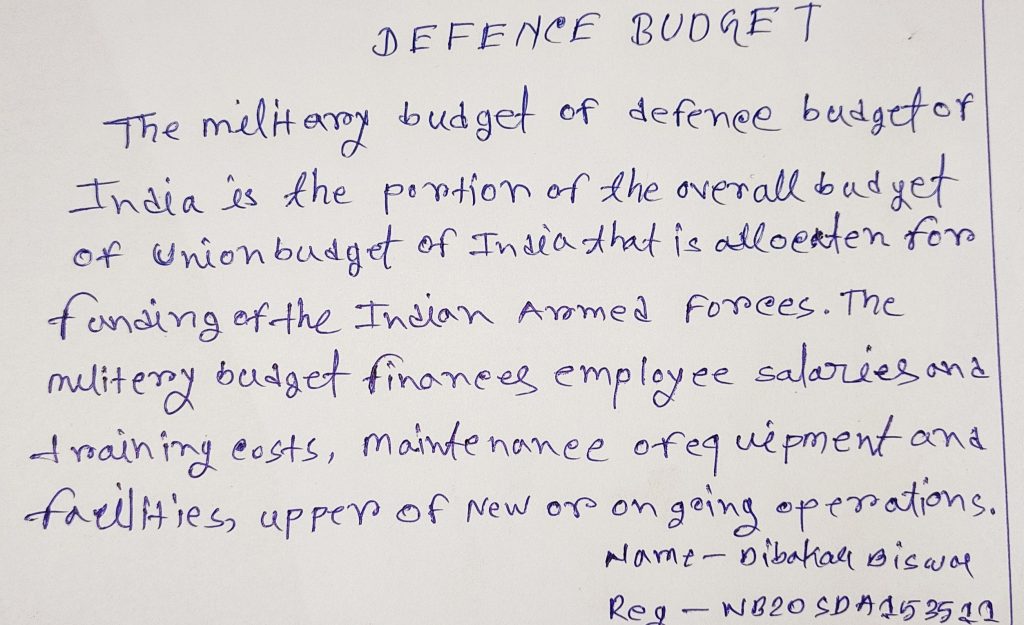 DEFENCE BUDGET
The military budget of defence budget of
India is the portion of the overall budget
of Union budget of India that is allocaten for
funding of the Indian Armed Forces. The
militery budget finances employee salaries and
training costs, maintenance of equipment and
facilities, upper of New or on going operations.
Name - Dibakar Biswal
Reg - NB20SDA153511